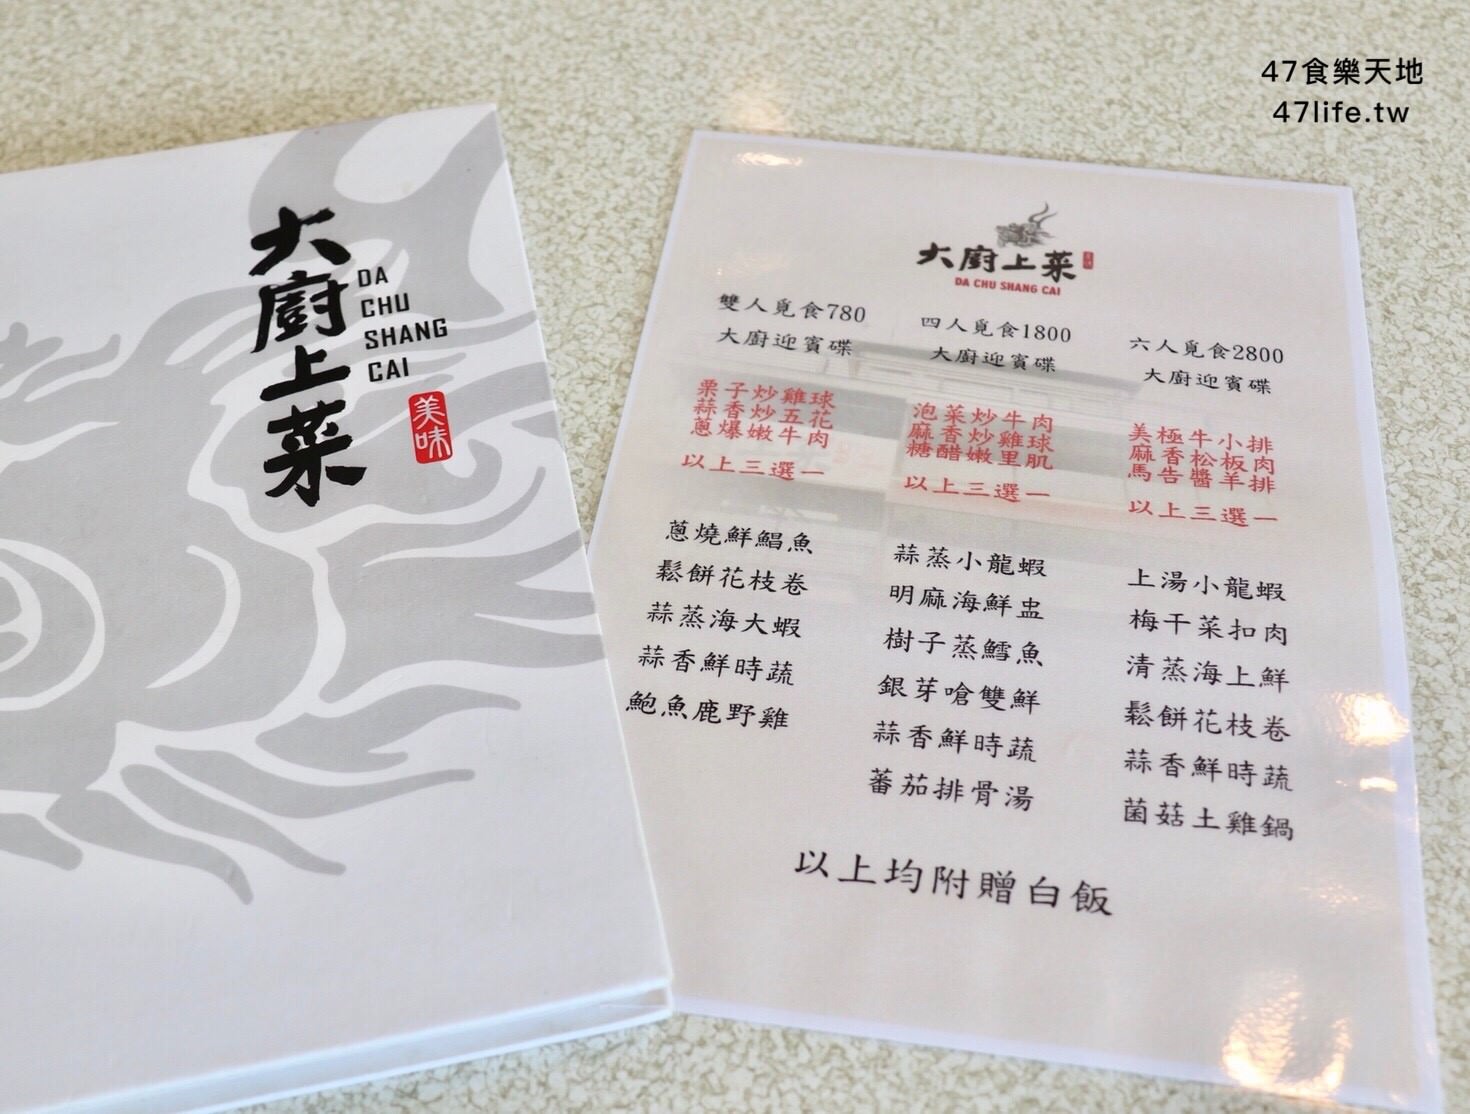 47食樂天地
47life.tw
大廚上菜
DA
CHU
SHANG
CAI
美味
大廚上菜
DA CHU SHANG CAI
雙人覓食780
大廚迎賓碟
栗子炒雞球
蒜香炒五花
蔥爆嫩牛肉
以上三選一
蔥燒鮮鯧魚
鬆餅花枝卷
蒜蒸海大蝦
蒜香鮮時蔬
鮑魚鹿野雞
四人覓食1800
大廚迎賓碟
泡菜炒牛肉
麻香炒雞球
糖醋嫩里肌
以上三選一
蒜蒸小龍蝦
明麻海鮮盅
樹子蒸鱈魚
銀芽嗆雙鮮
蒜香鮮時蔬
蕃茄排骨湯
六人覓食2800
大廚迎賓碟
美極牛小排
麻香松板肉
馬告醬羊排
以上三選一
上湯小龍蝦
梅干菜扣肉
清蒸海上鮮
鬆餅花枝卷
蒜香鮮時蔬
菌菇土雞鍋
以上均附贈白飯